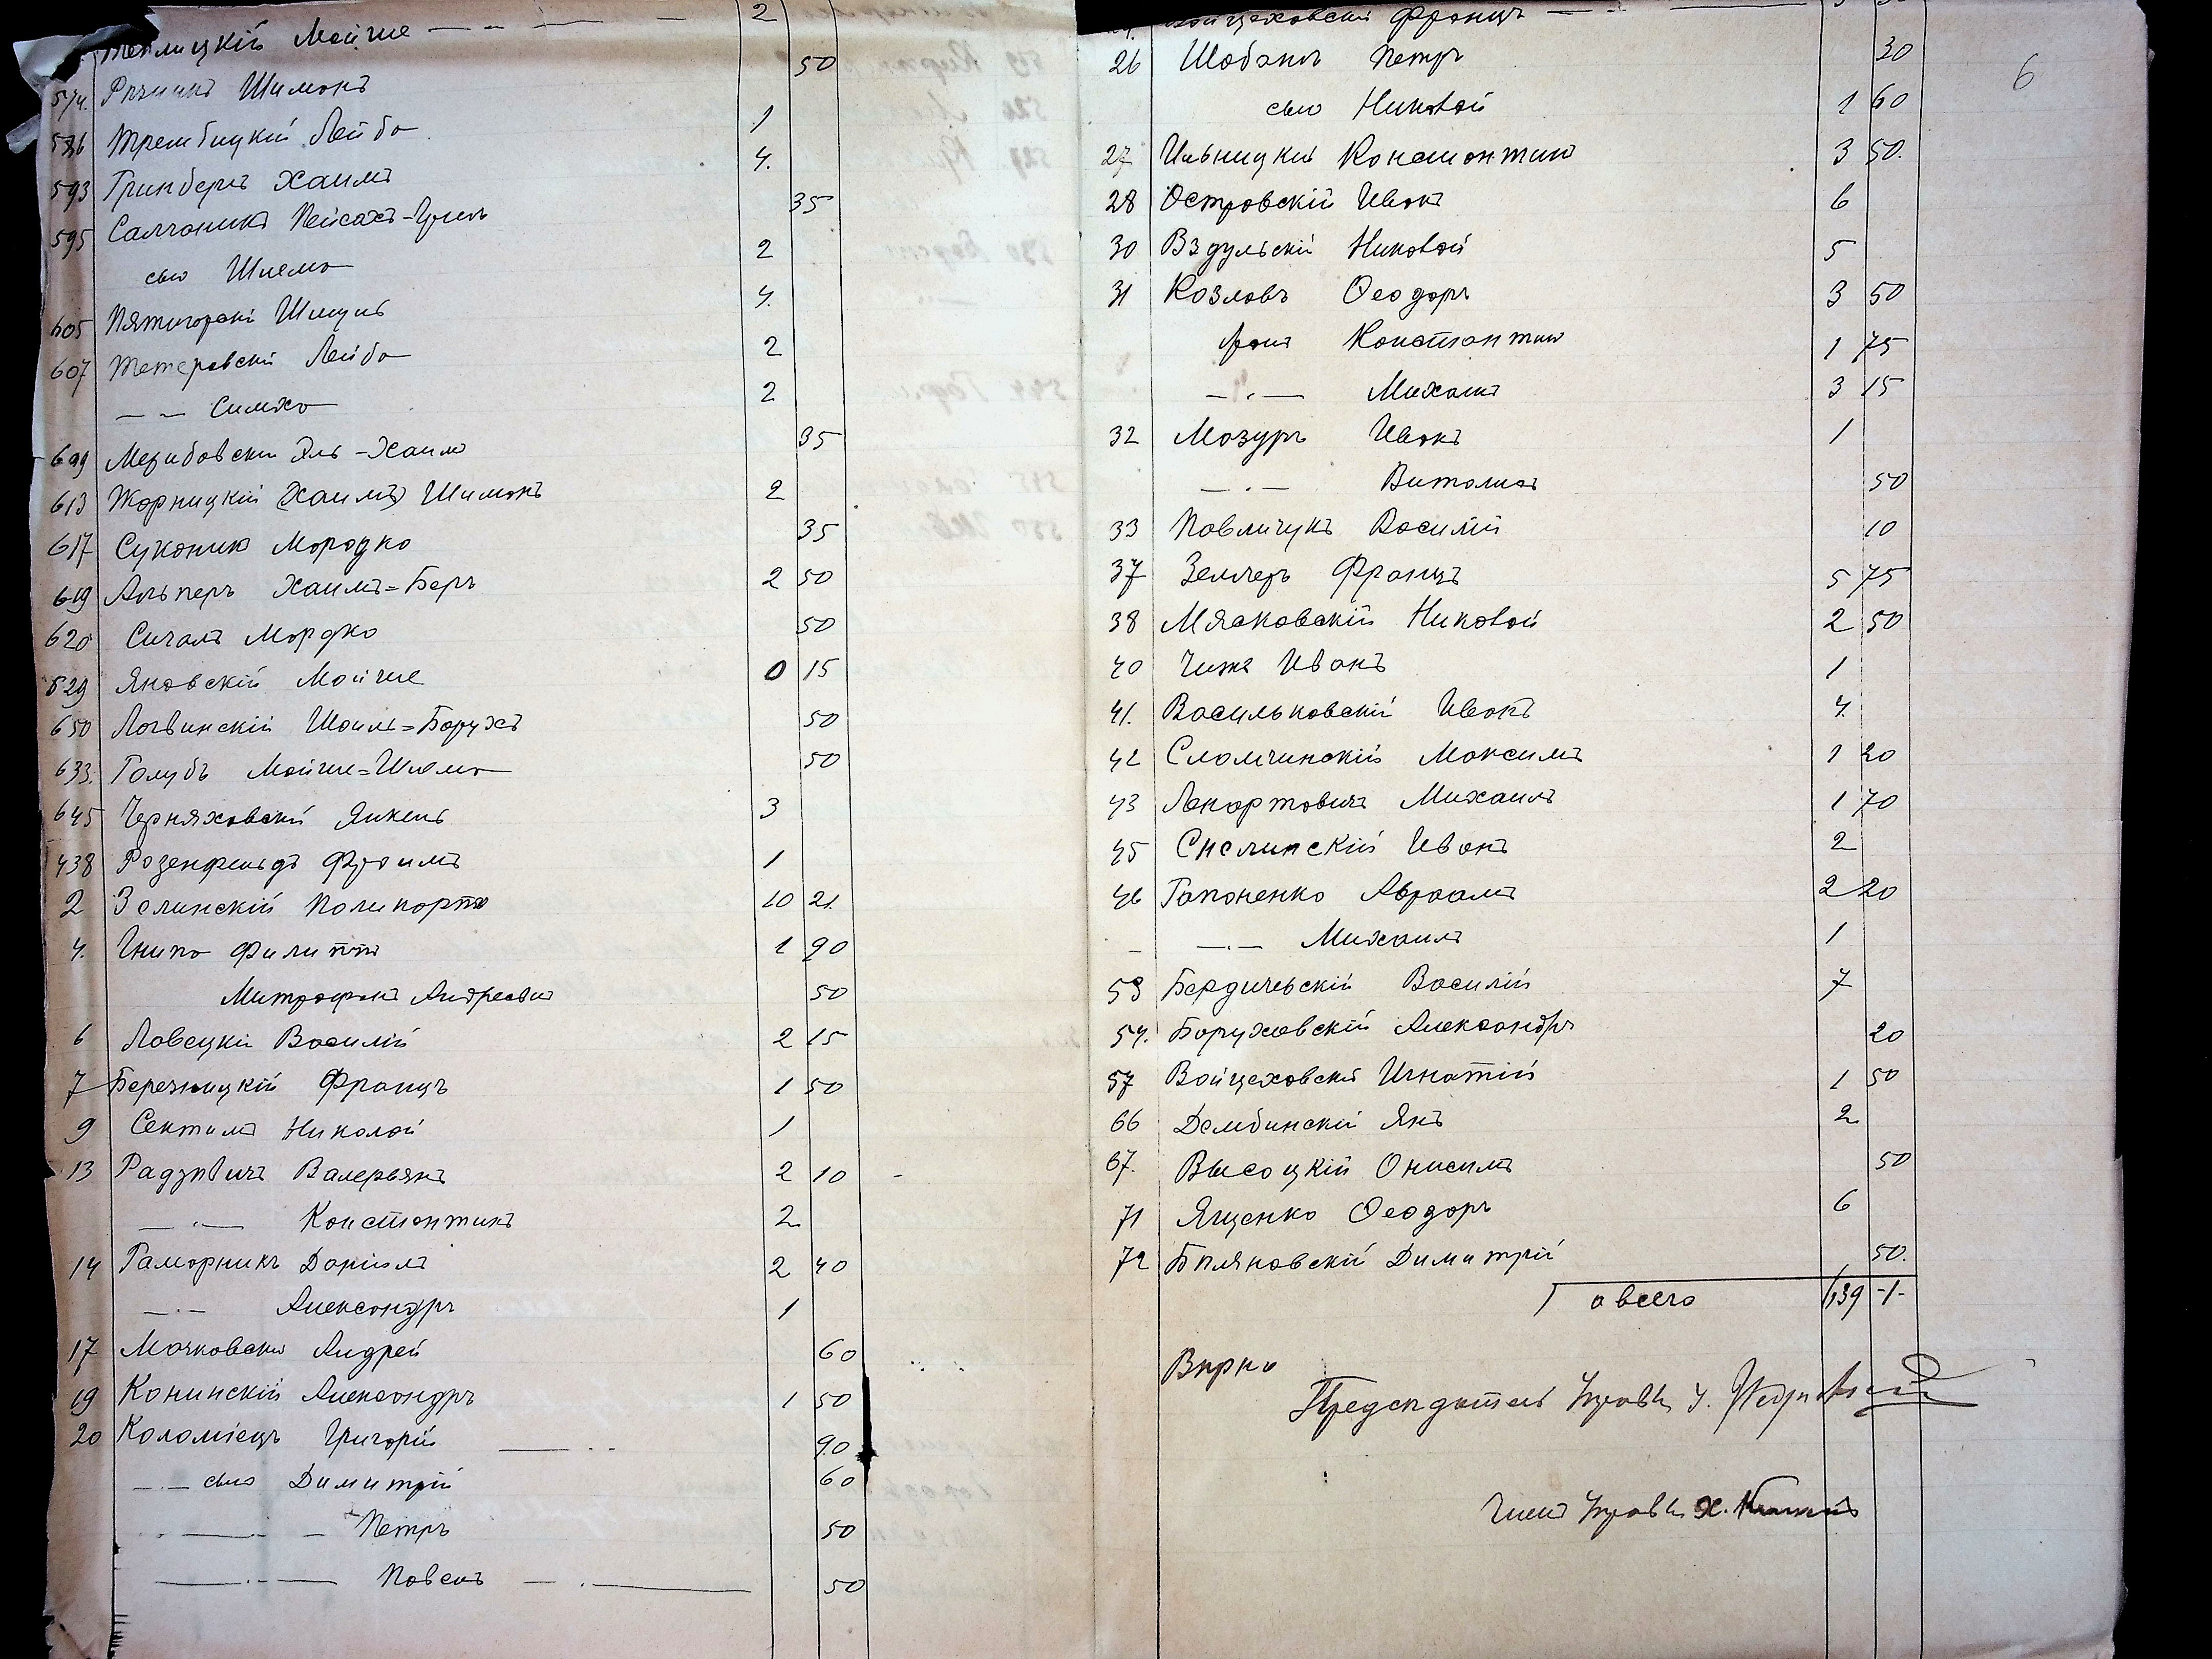 Теплицкій Мойше — 2
574. Рѣчникъ Шимонъ 50
586 Трембицкій Лейба 1
593 Гринбергъ Хаимъ 4.
595 Салганикъ Пейсахъ-Іуиль 35
сынъ Шлема 2
605 Пятигорскій Шмуль 4.
607 Тетеревскій Лейба 2
— — Симха 2
609 Мезибовскій Эль-Хаимъ 35
613 Жорницкій (Хаимъ) Шимонъ 2
617 Суконикъ Мородко 35
619 Альперъ Хаимъ=Беръ 2 50
620 Сигалъ Мордко 50
629 Яновскій Мойше 0 15
650 Логвинскій Шоилъ=Борухъ 50
633. Голубъ Мойше=Шлема 50
645 Черняховскій Янкель 3
438 Розенфельдъ Фроимъ 1
2 Зелинскій Поликарпъ 10 21.
4. Гнипа Филиппъ 1 90
Митрофанъ Андреевъ 50
6 Ловецкій Василій 2 15
7 Березницкій Францъ 1 50
9 Сектимъ Николай 1
13 Радзѣвичъ Валерьянъ 2 10
— " — Константинъ 2
14 Гаморникъ Даніилъ 2 40
— " — Александръ 1
17 Мачковскій Андрей 60
19 Конинскій Александръ 1 50
20 Коломіецъ Григорій — 90
— " — сынъ Димитрій 60
— " — Петръ 50
— " — Павелъ — 50
Войцеховскій Францъ —
26 Шабанъ Петръ 30
сынъ Николай 1 60
27 Ильницкій Константинъ 3 50.
28 Островскій Иванъ 6
30 Вздульскій Николай 5
31 Козловъ Ѳеодоръ 3 50
братъ Константинъ 1 75
— " — Михаилъ 3 15
32 Мазуръ Иванъ 1
— " — Виталій 50
33 Павличукъ Василій 10
37 Зельгеръ Францъ 5 75
38 Мясковскій Николай 2 50
40 Чижъ Иванъ 1
41. Васильковскій Иванъ 4.
42 Сломчинскій Максимъ 1 20
43 Лекартовичъ Михаилъ 1 70
45 Снелинскій Иванъ 2
46 Гапоненко Авраамъ 2 20
— — " — Михаилъ 1
53 Бердичевскій Василій 7
54. Боруховскій Александръ 20
57 Войцеховскій Игнатій 1 50
66 Дембинскій Янъ 2
67. Высоцкій Онисимъ 50
71 Ященко Ѳеодоръ 6
72 Бѣляновскій Димитрій 50.
а всего 139 -1-
6
Вѣрно
Предсѣдатель Управы
Членъ Управы